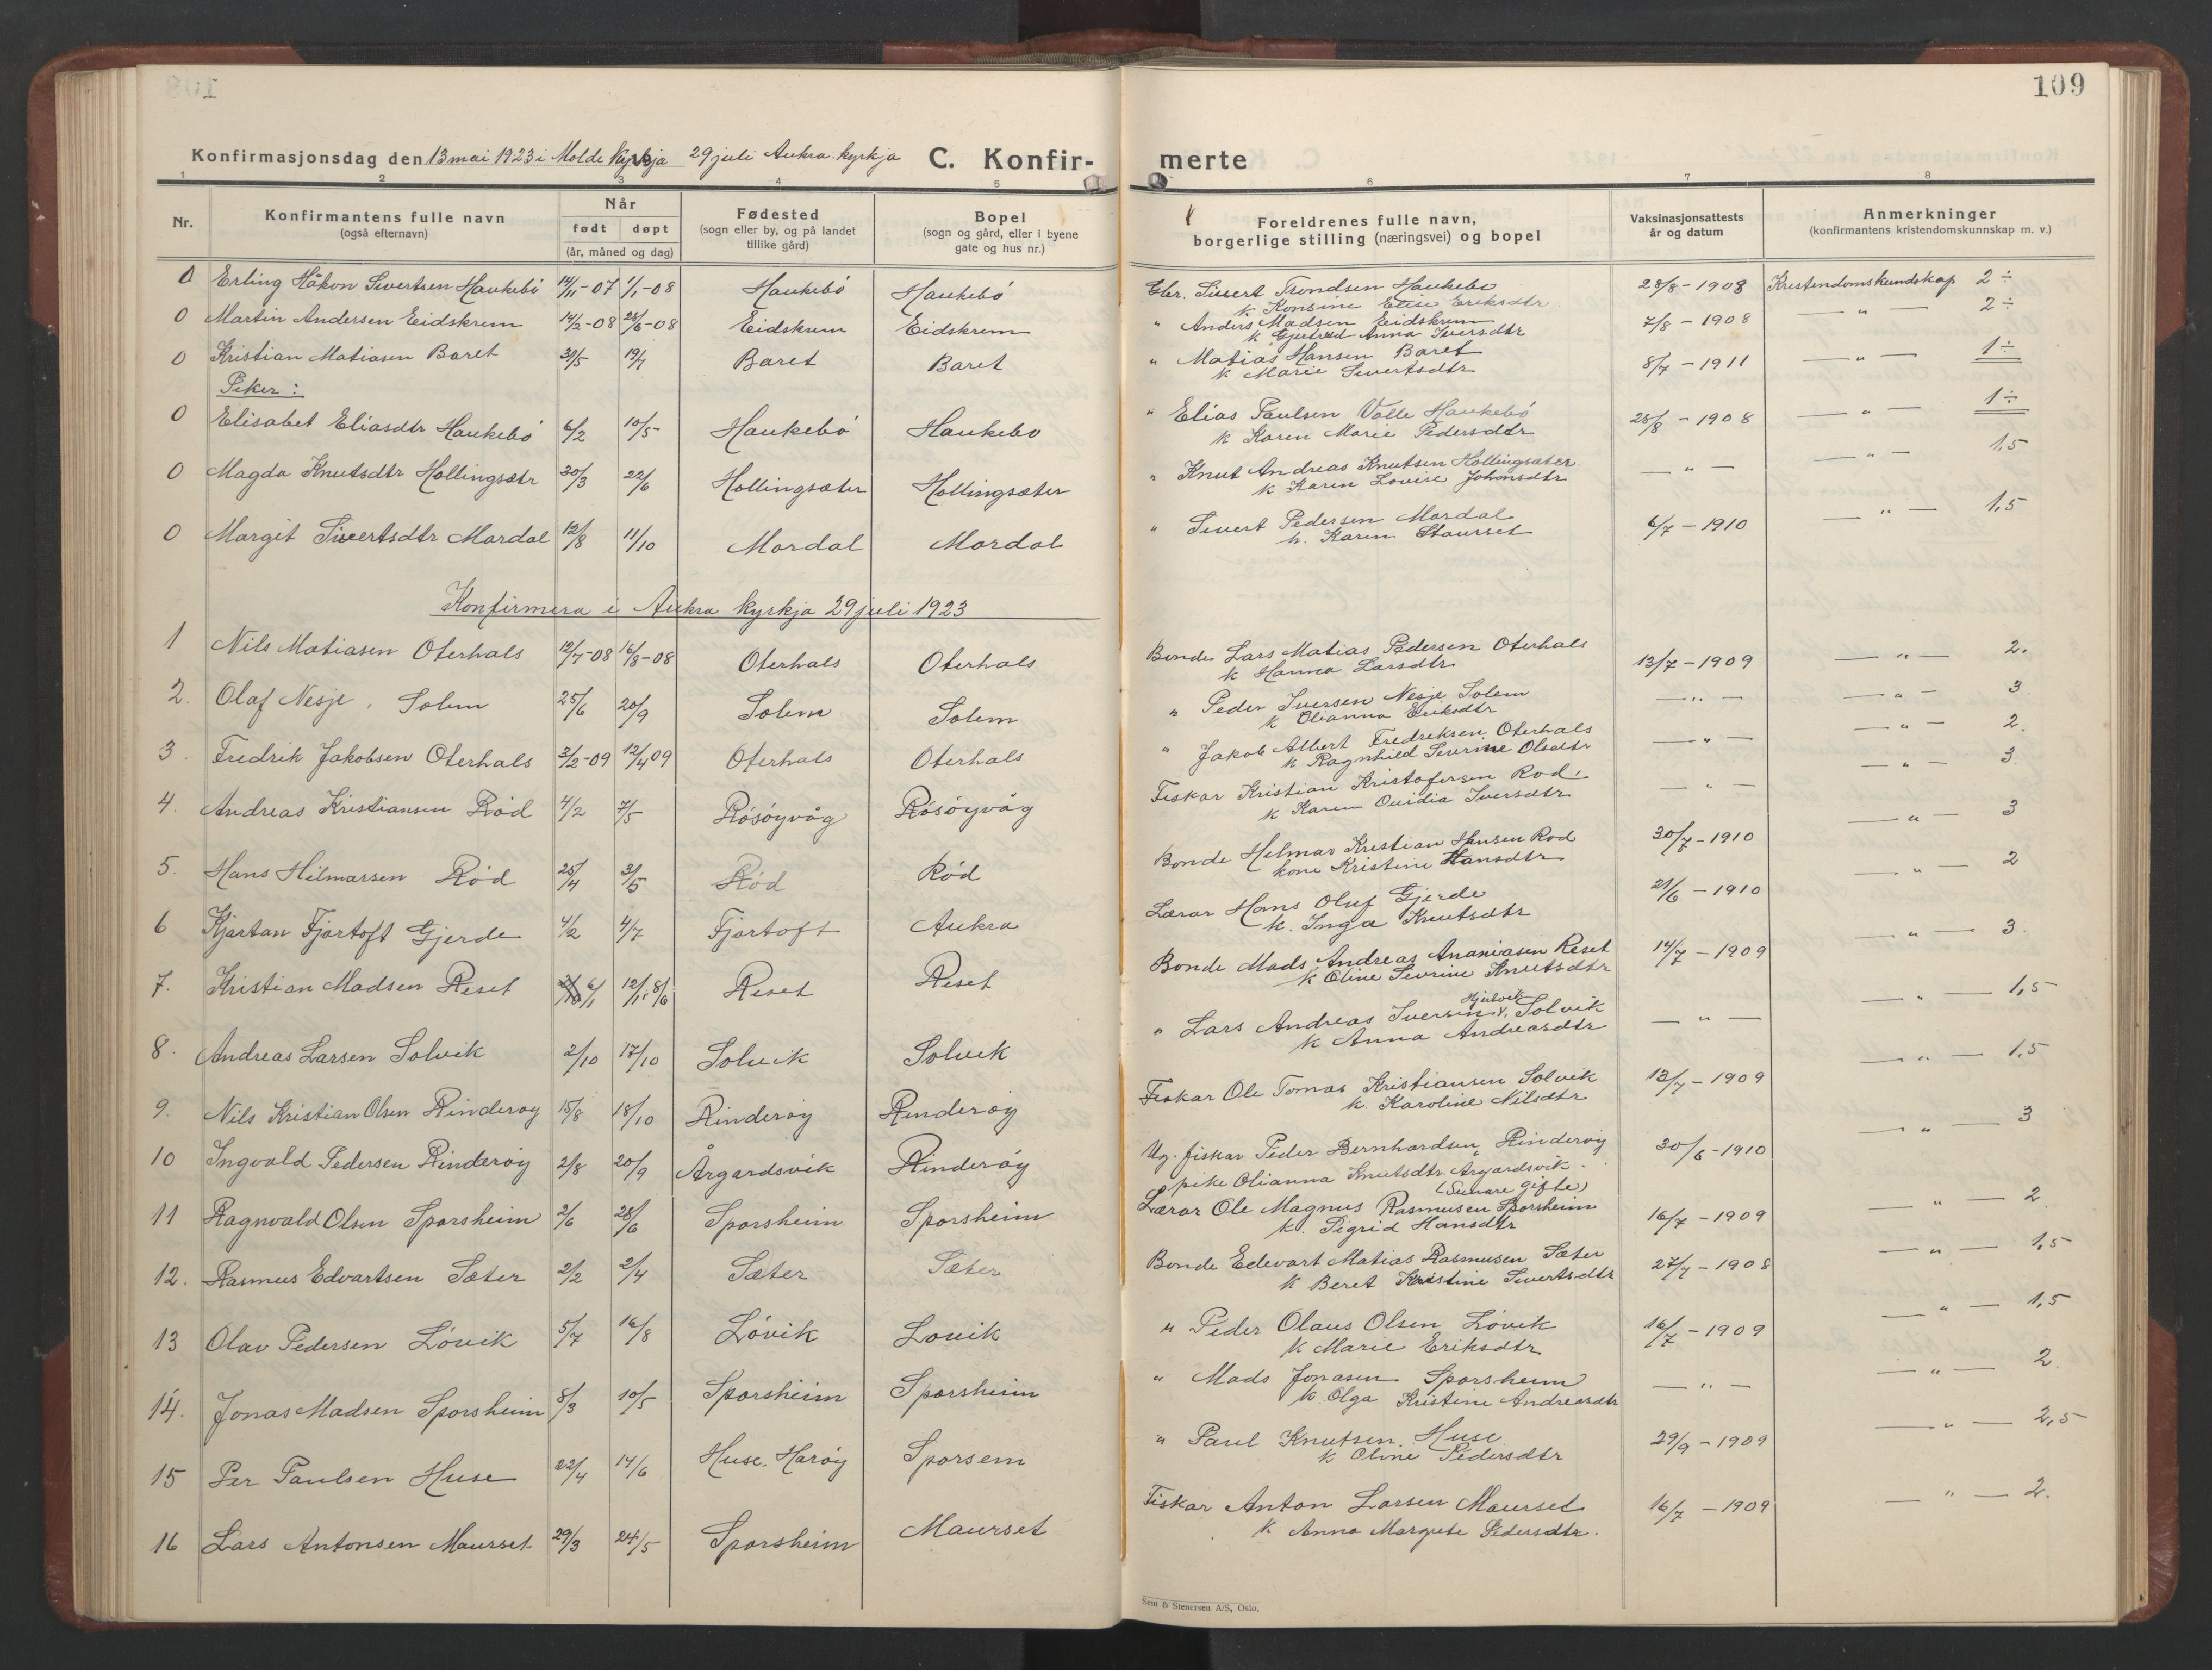 109
Konfirmasjonsdag den 13 mai 1923 i Molde kyrkja 29 juli Aukra kyrkja C. Konfir-merte
1 2 3 4 5 6 7 8
Nr. Konfirmantens fulle navn (også efternavn) Når født døpt (år, måned og dag) Fødested (sogn eller by, og på landet tillike gård) Bopel (sogn og gård, eller i byene gate og hus nr.) Foreldrenes fulle navn, borgerlige stilling (næringsvei) og bopel Vaksinasjonsattests år og datum Anmerkninger (konfirmantens kristendomskunnskap m. v.)
0 Erling Håkon Sivertsen Haukebö 14/11-07 1/1-08 Haukebö Haukebö Gbr. Sivert Trondsen Haukebö 28/8-1908 Kristendomskundskap 2÷
k Konsine Elise Eriksdtr
0 Martin Andersen Eidskrem 14/2-08 28/6-08 Eidskrem Eidskrem " Anders Madsen Eidskrem 7/8-1908 — " — 2÷
k Gjertrud Anna Iversdtr
0 Kristian Matiasen Baret 30/5 19/7 Baret Baret " Matias Hansen Baret 8/7-1911 — " — 1÷
k Marie Sivertsdtr
Piker:
0 Elisabet Eliasdtr Haukebö 6/2 10/5 Haukebö Haukebö " Elias Paulsen Valle Haukebö 28/8-1908 — " — 1÷
k Karen Marie Pedersdtr
0 Magda Knutsdtr Hollingsætr 30/3 22/6 Hollingsæter Hollingsæter " Knut Andreas Knutsen Hollingsæter — " — — " — 1,5
k Karen Lovise Johansdtr
0 Margit Sivertsdtr Mordal 12/8 11/10 Mordal Mordal " Sivert Pedersen Mordal 6/7-1910 — " — 1,5
k. Karen Staurset
Konfirmera i Aukra kyrkja 29 juli 1923
1 Nils Matiasen Oterhals 12/7-08 16/8-08 Oterhals Oterhals Bonde Lars Matias Pedersen Oterhals 13/7-1909 — " — 2.
k Hanna Larsdtr
2. Olaf Nesje, Solem 25/6 20/9 Solem Solem " Peder Iversen Nesje Solem — " — — " — 3.
k Olianna Eriksdtr
3. Fredrik Jakobsen Oterhals 3/2-09 12/4 09 Oterhals Oterhals " Jakob Albert Fredriksen Oterhals — " — — " — 2.
k Ragnhild Severine Olsdtr
4. Andreas Kristiansen Röd 4/2 7/5 Rösöyvåg Rösöyvåg Fiskar Kristian Kristofersen Rod. — " — — " — 3.
k Karen Ovidia Iversdtr
5. Hans Hilmarsen Röd 25/4 31/5 Röd Röd Bonde Helmar Kristian Hansen Rod 30/7-1910 — " — 3
kone Kristine Hansdtr
6 Kjartan Fjørtoft Gjerde 4/2 4/7 Fjørtoft Aukra Lærar Hans Oluf Gjerde 21/6-1910 — " — 2
k. Inga Knutsdtr
7. Kristian Madsen Reset 6/1 8/6 Reset Reset Bonde Mads Andreas Ananiasen Reset 14/7-1909 — " — 3.
k Oline Sevrine Knutsdtr
8. Andreas Larsen Solvik 2/10 17/10 Solvik Solvik " Lars Andreas Iversen Hjelvik, Solvik — " — — " — 1,5
k Anna Andreasdtr
9. Nils Kristian Olsen Rinderøy 15/8 18/10 Rinderöy Rinderöy Fiskar Ole Tomas Kristiansen Solvik 13/7-1909 — " — 1,5
k. Karoline Nilsdtr
10 Ingvald Pedersen Rinderöy 2/8 20/9 Årgardsvik Rinderöy Ug. fiskar Peder Bernhardsen Rinderöy 30/6-1910 — " — 3
pike Olianna Knutsdtr. Årgardsvik.
(Seinare gifte)
11 Ragnvald Olsen Sporsheim 2/6 28/6 Sporsheim Sporsheim Lærar Ole Magnus Rasmusen Sporsheim 16/7-1909 — " — 2
k. Sigrid Hansdtr
12. Rasmus Edvartsen Sæter 2/2 2/4 Sæter Sæter Bonde Edevart Matias Rasmusen Sæter 27/7-1908 — " — 1,5
k Beret Kristine Sivertsdtr
13 Olav Pedersen Lövik 5/7 16/8 Lövik Lovik " Peder Olaus Olsen Lövik 16/7-1909 — " — 1,5
k Marie Eriksdtr
14. Jonas Madsen Sporsheim 8/3 10/5 Sporsheim Sporsheim " Mads Jonasen Sporsheim — " — — " — 2.
k. Olga Kristine Andreasdtr
15 Per Paulsen Huse 22/4 14/6 Huse, Haröy Sporsem " Paul Knutsen Huse 29/9-1909 — " — 2,5
k Oline Pedersdtr
16 Lars Antonsen Maurset 29/3 24/5 Sporsheim Maurset Fiskar Anton Larsen Maurset 16/7-1909 — " — 2.
k Anna Margrete Pedersdtr.
Sem & Stenersen A/S, Oslo.